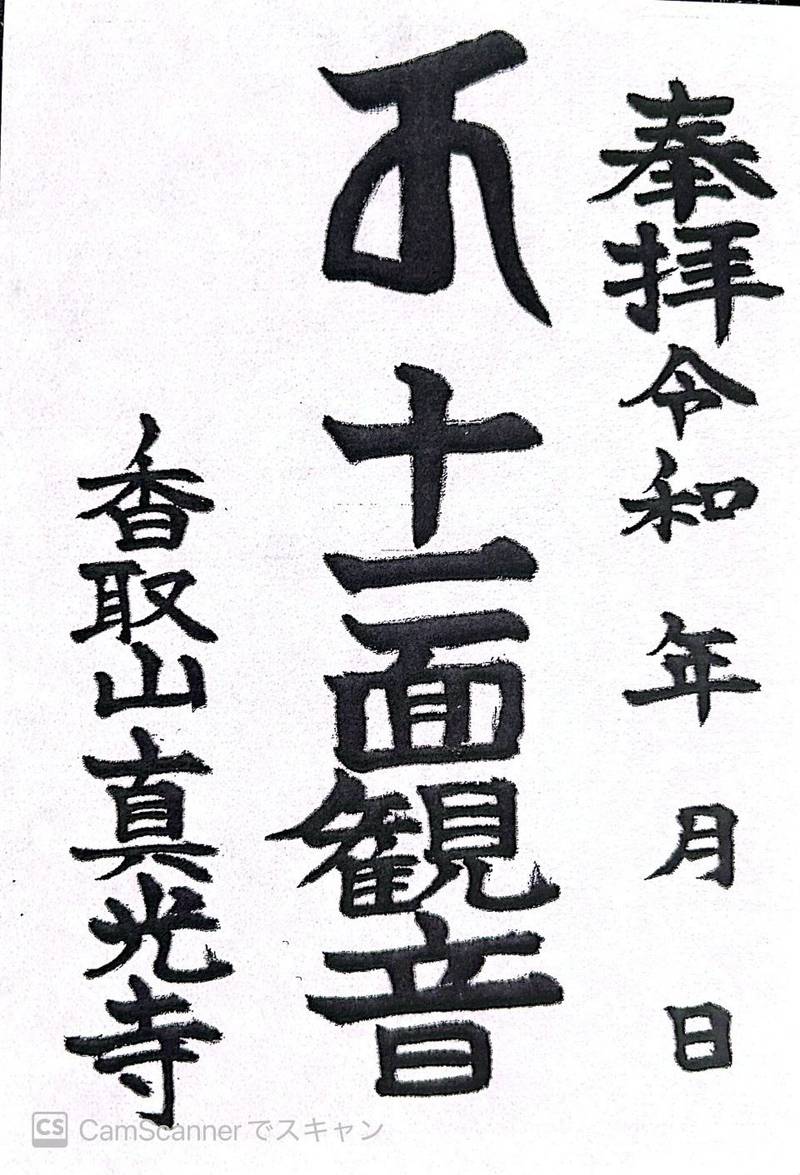 奉拝令和 年 月 日
十一面観音
香取山真光寺
CS CamScannerでスキャン